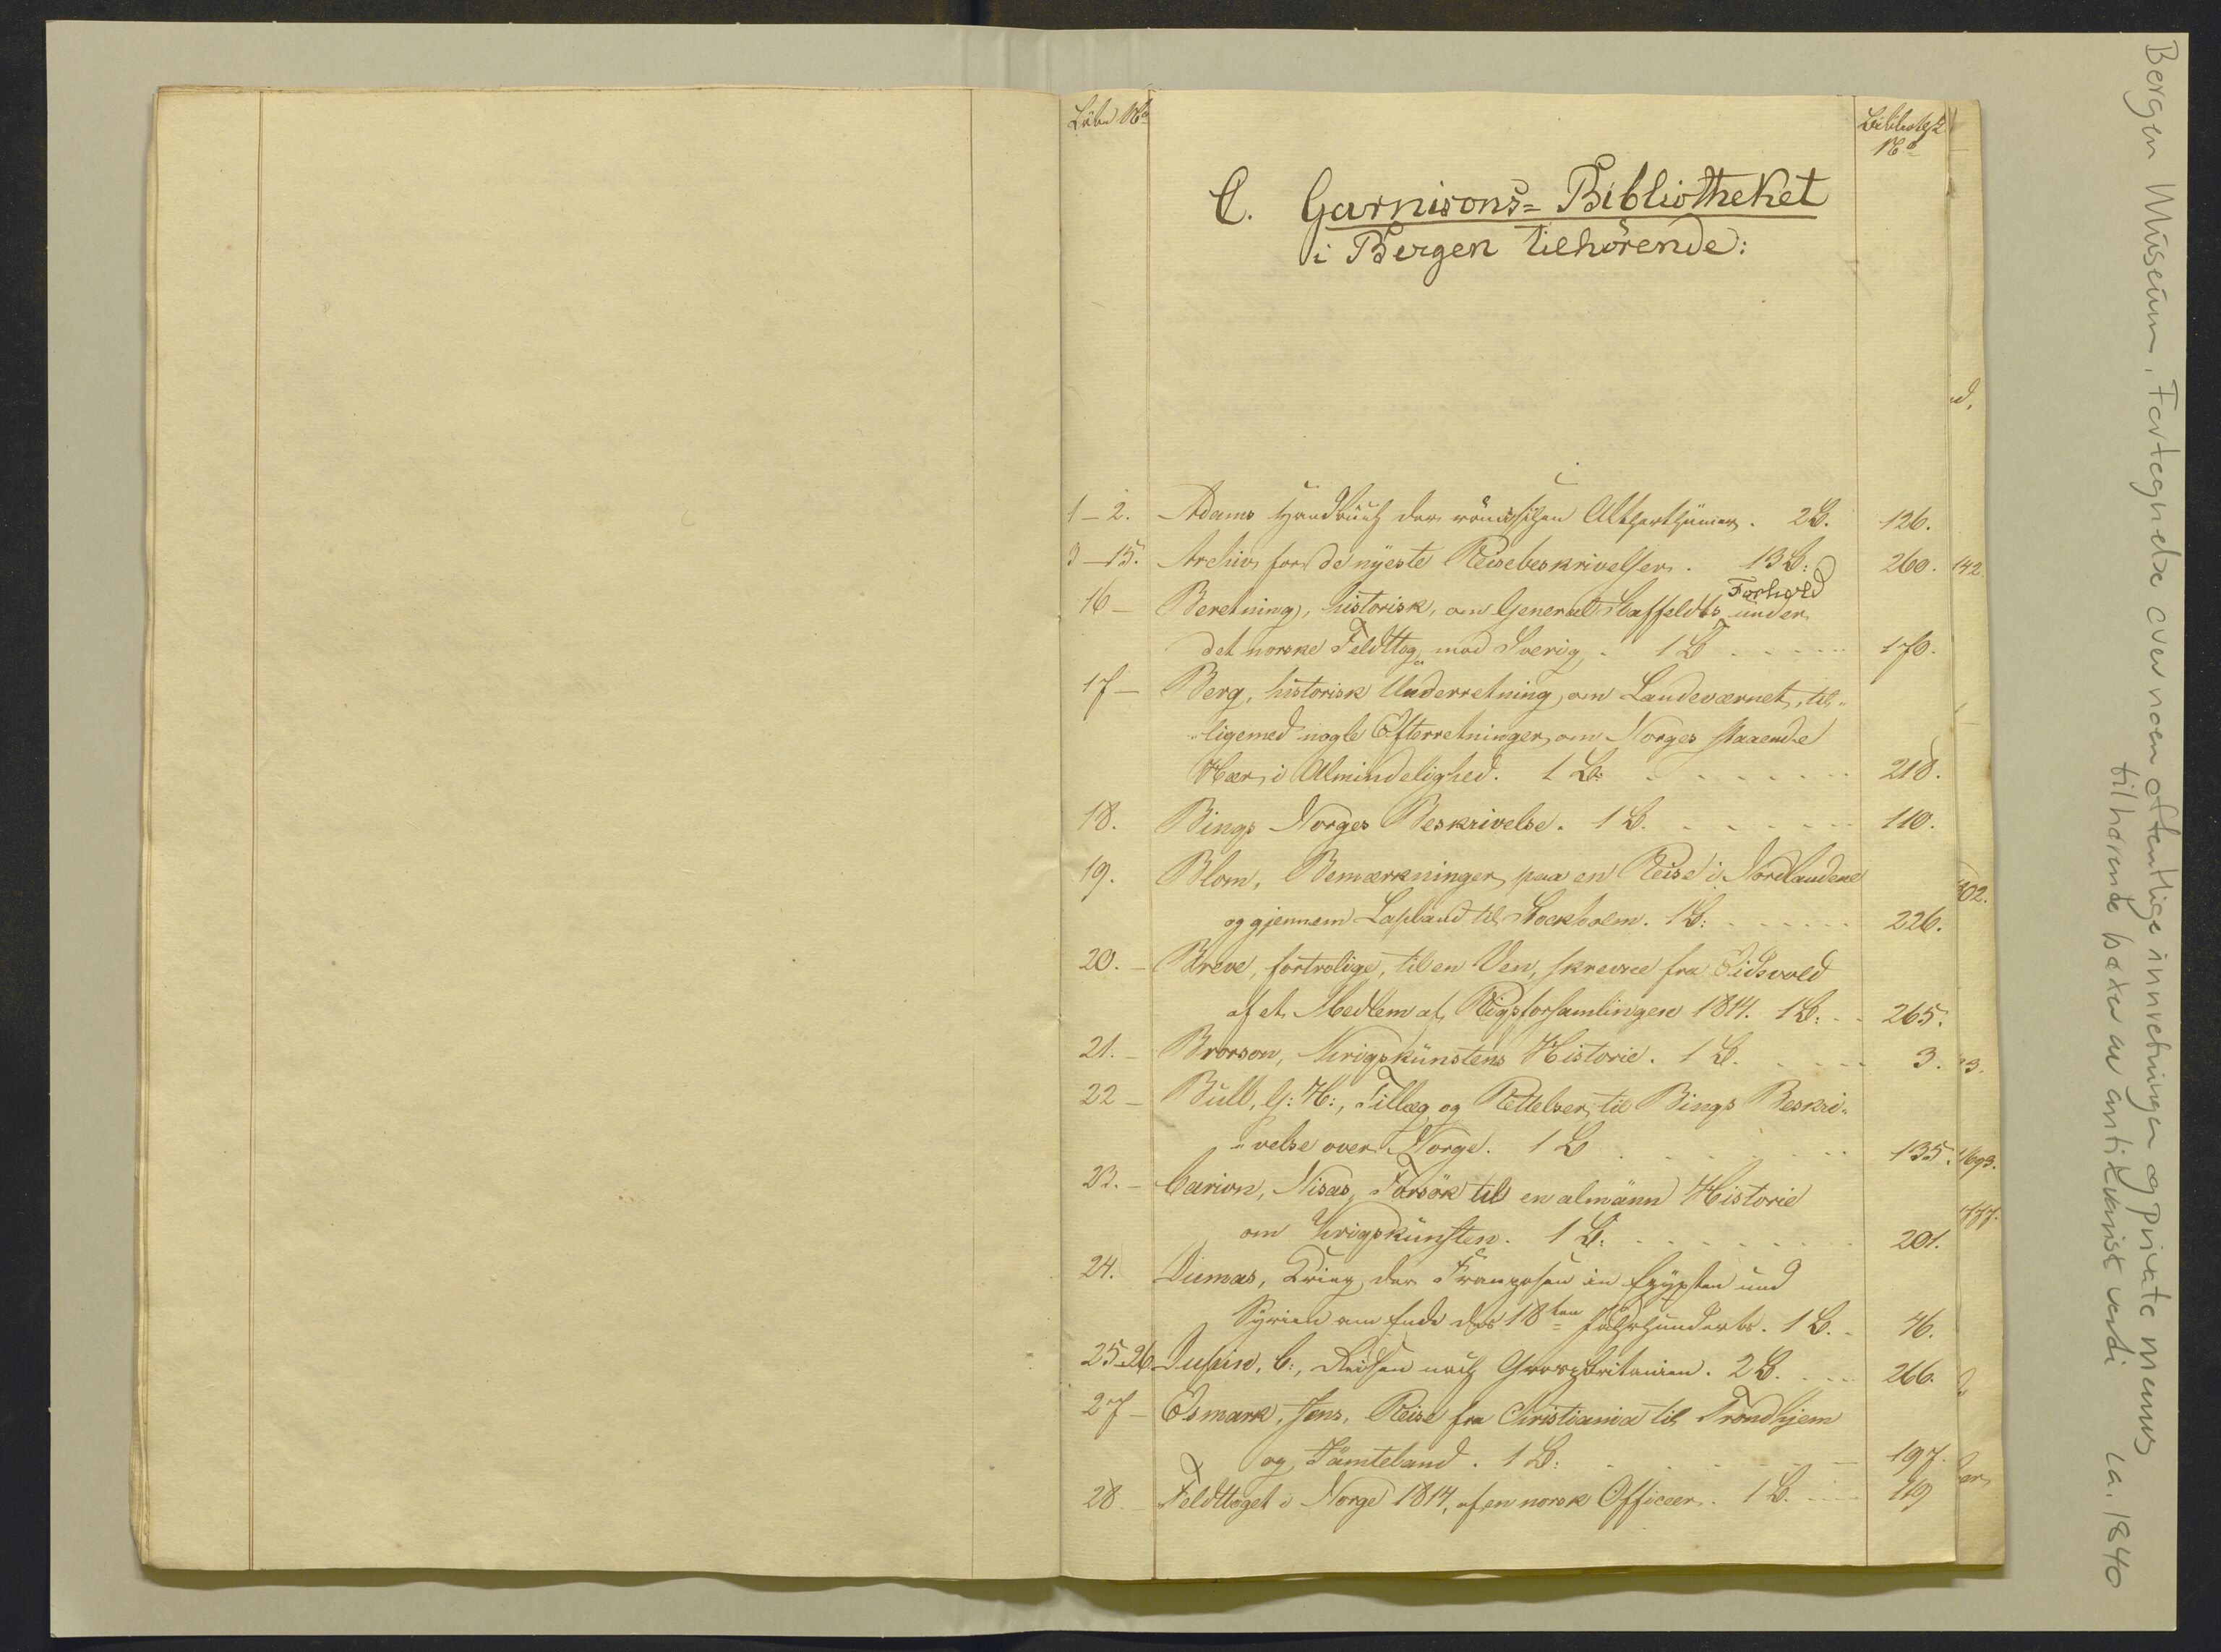 Löbe No
Bibliothek
No
C. Garnisons=Bibliotheket
i Bergen tilhörende:
1–2. Adams Handbuch der römischen Alterthümer. 2 B. 126.
3–15. Archiv for de nyeste Reisebeskrivelser. 13 B: 260.
Forhold
16– Beretning, historisk, om General Staffeldts under
det norske Felttog mod Sverig. 1 B 170.
17– Berg, historisk Underretning om Landeværnet, til„
„ligemed nogle Efterretninger om Norges staaende
Hær i Almindelighed. 1 B: 218.
18. Bings Norges Beskrivelse. 1 B. 110.
19. Blom, Bemærkninger paa en Reise i Nordlandene
og gjennem Lapland til Stockholm. 1 B: 226.
20.– Breve, fortrolige, til en Ven, skrevne fra Eidsvold
af et Medlem af Rigsforsamlingen 1814. 1 B: 265.
21.– Brorson, Krigskünstens Historie. 1 B. 3.
22– Bull, G: H:, Tillæg og Rettelser til Bings Beskri„
„velse over Norge. 1 B 135.
23.– Carion, Nisas, Forsök til en almänn Historie
om Krigskünsten. 1 B. 201.
24. Dumas, Krieg der Franzosen in Egypten und
Syrien am Ende des 18ten Jahrhunderts. 1 B. 46.
25–26 Dupin, C:, Reisen nach Groszbritanien. 2 B. 266.
27– Esmark, Jens, Reise fra Christiania til Trondhjem
og Jämteland. 1 B: 197.
28.– Felttoget i Norge 1814, af en norsk Officeer. 1 B. 119
d.
142
302.
3.
1693.
777.
er
Bergen Museum, Fortegnelse over noen offentlige innretninger og private menns
tilhørende bøker av antikvarisk verdi ca. 1840